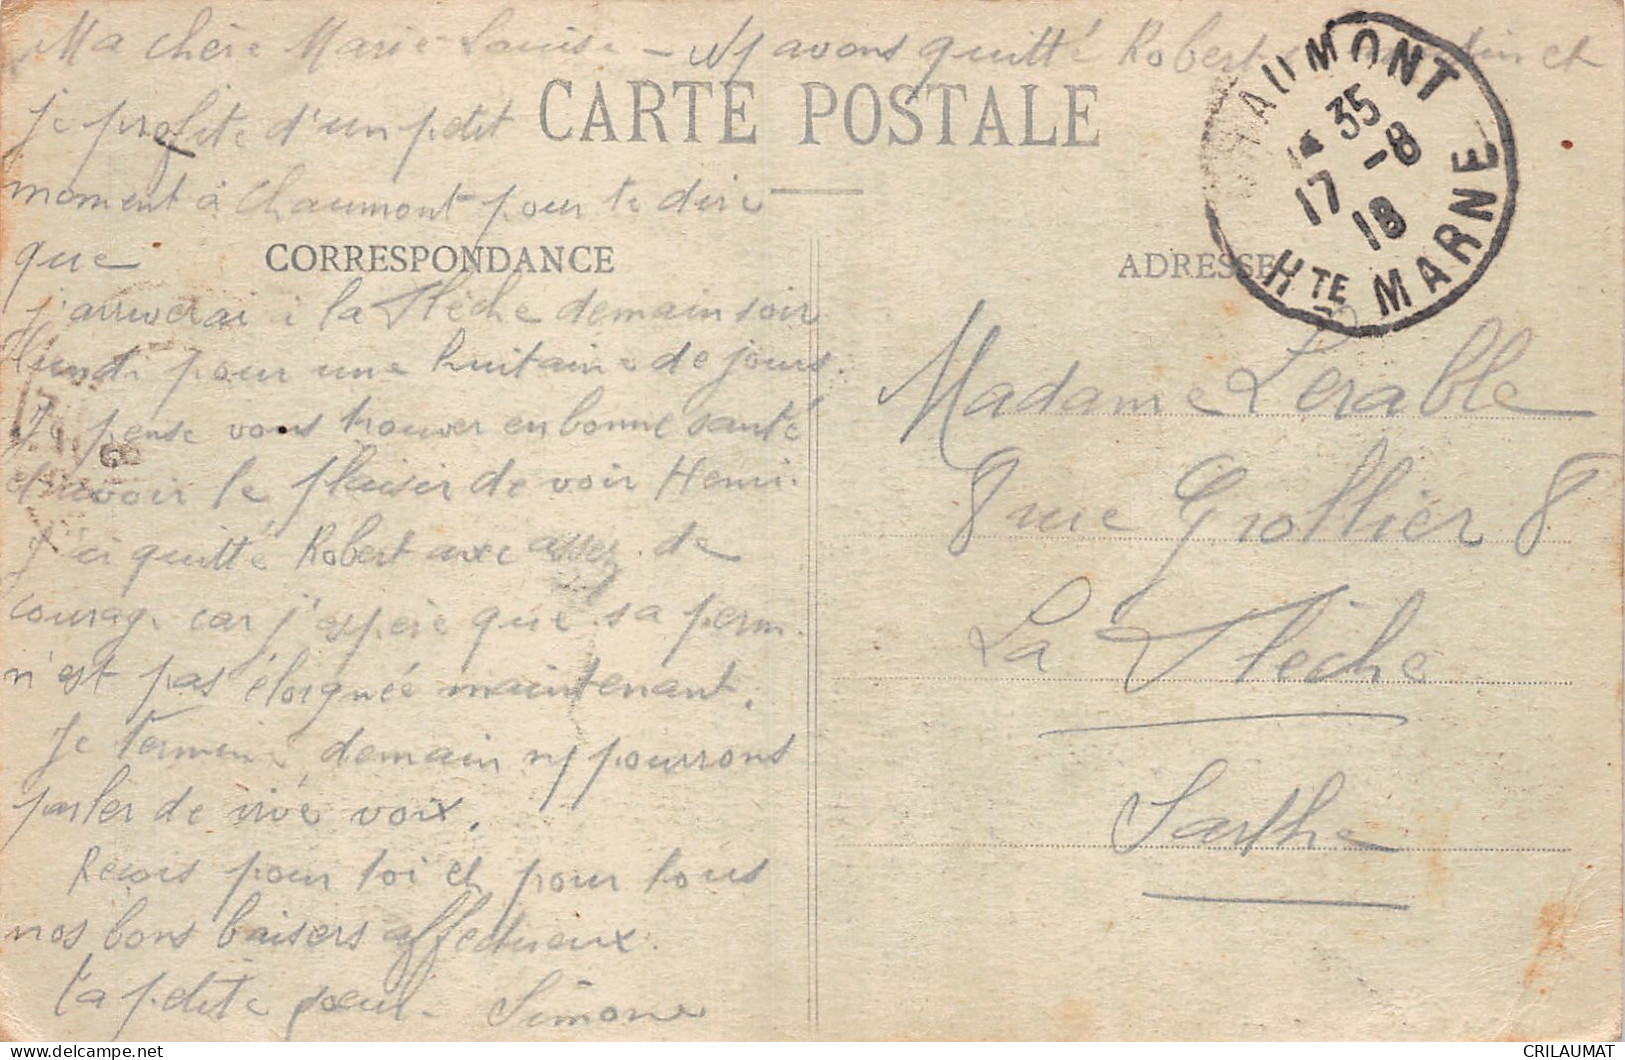 Ma chère Marie-Louise - N/ avons quitté Robert matin et
je profite d'un petit
CARTE POSTALE
moment à Chaumont pour te dire
que
CORRESPONDANCE
j'arriverai à la Flèche demain soir
pour une huitaine de jours.
Je pense vous trouver en bonne santé
avoir le plaisir de voir Henri.
J'ai quitté Robert avec assez de
courage car j'espère que sa perm.
n'est pas éloignée maintenant.
Je termine demain n/ pourrons
parler de vive voix.
Reçois pour toi et pour tous
nos bons baisers affectueux.
Ta petite soeur. Simone
CHAUMONT
35
17 -8
18
HTE MARNE
ADRESSE
Madame Lerable
8 rue Grollier 8
La Flèche
Sarthe
CRILAUMAT